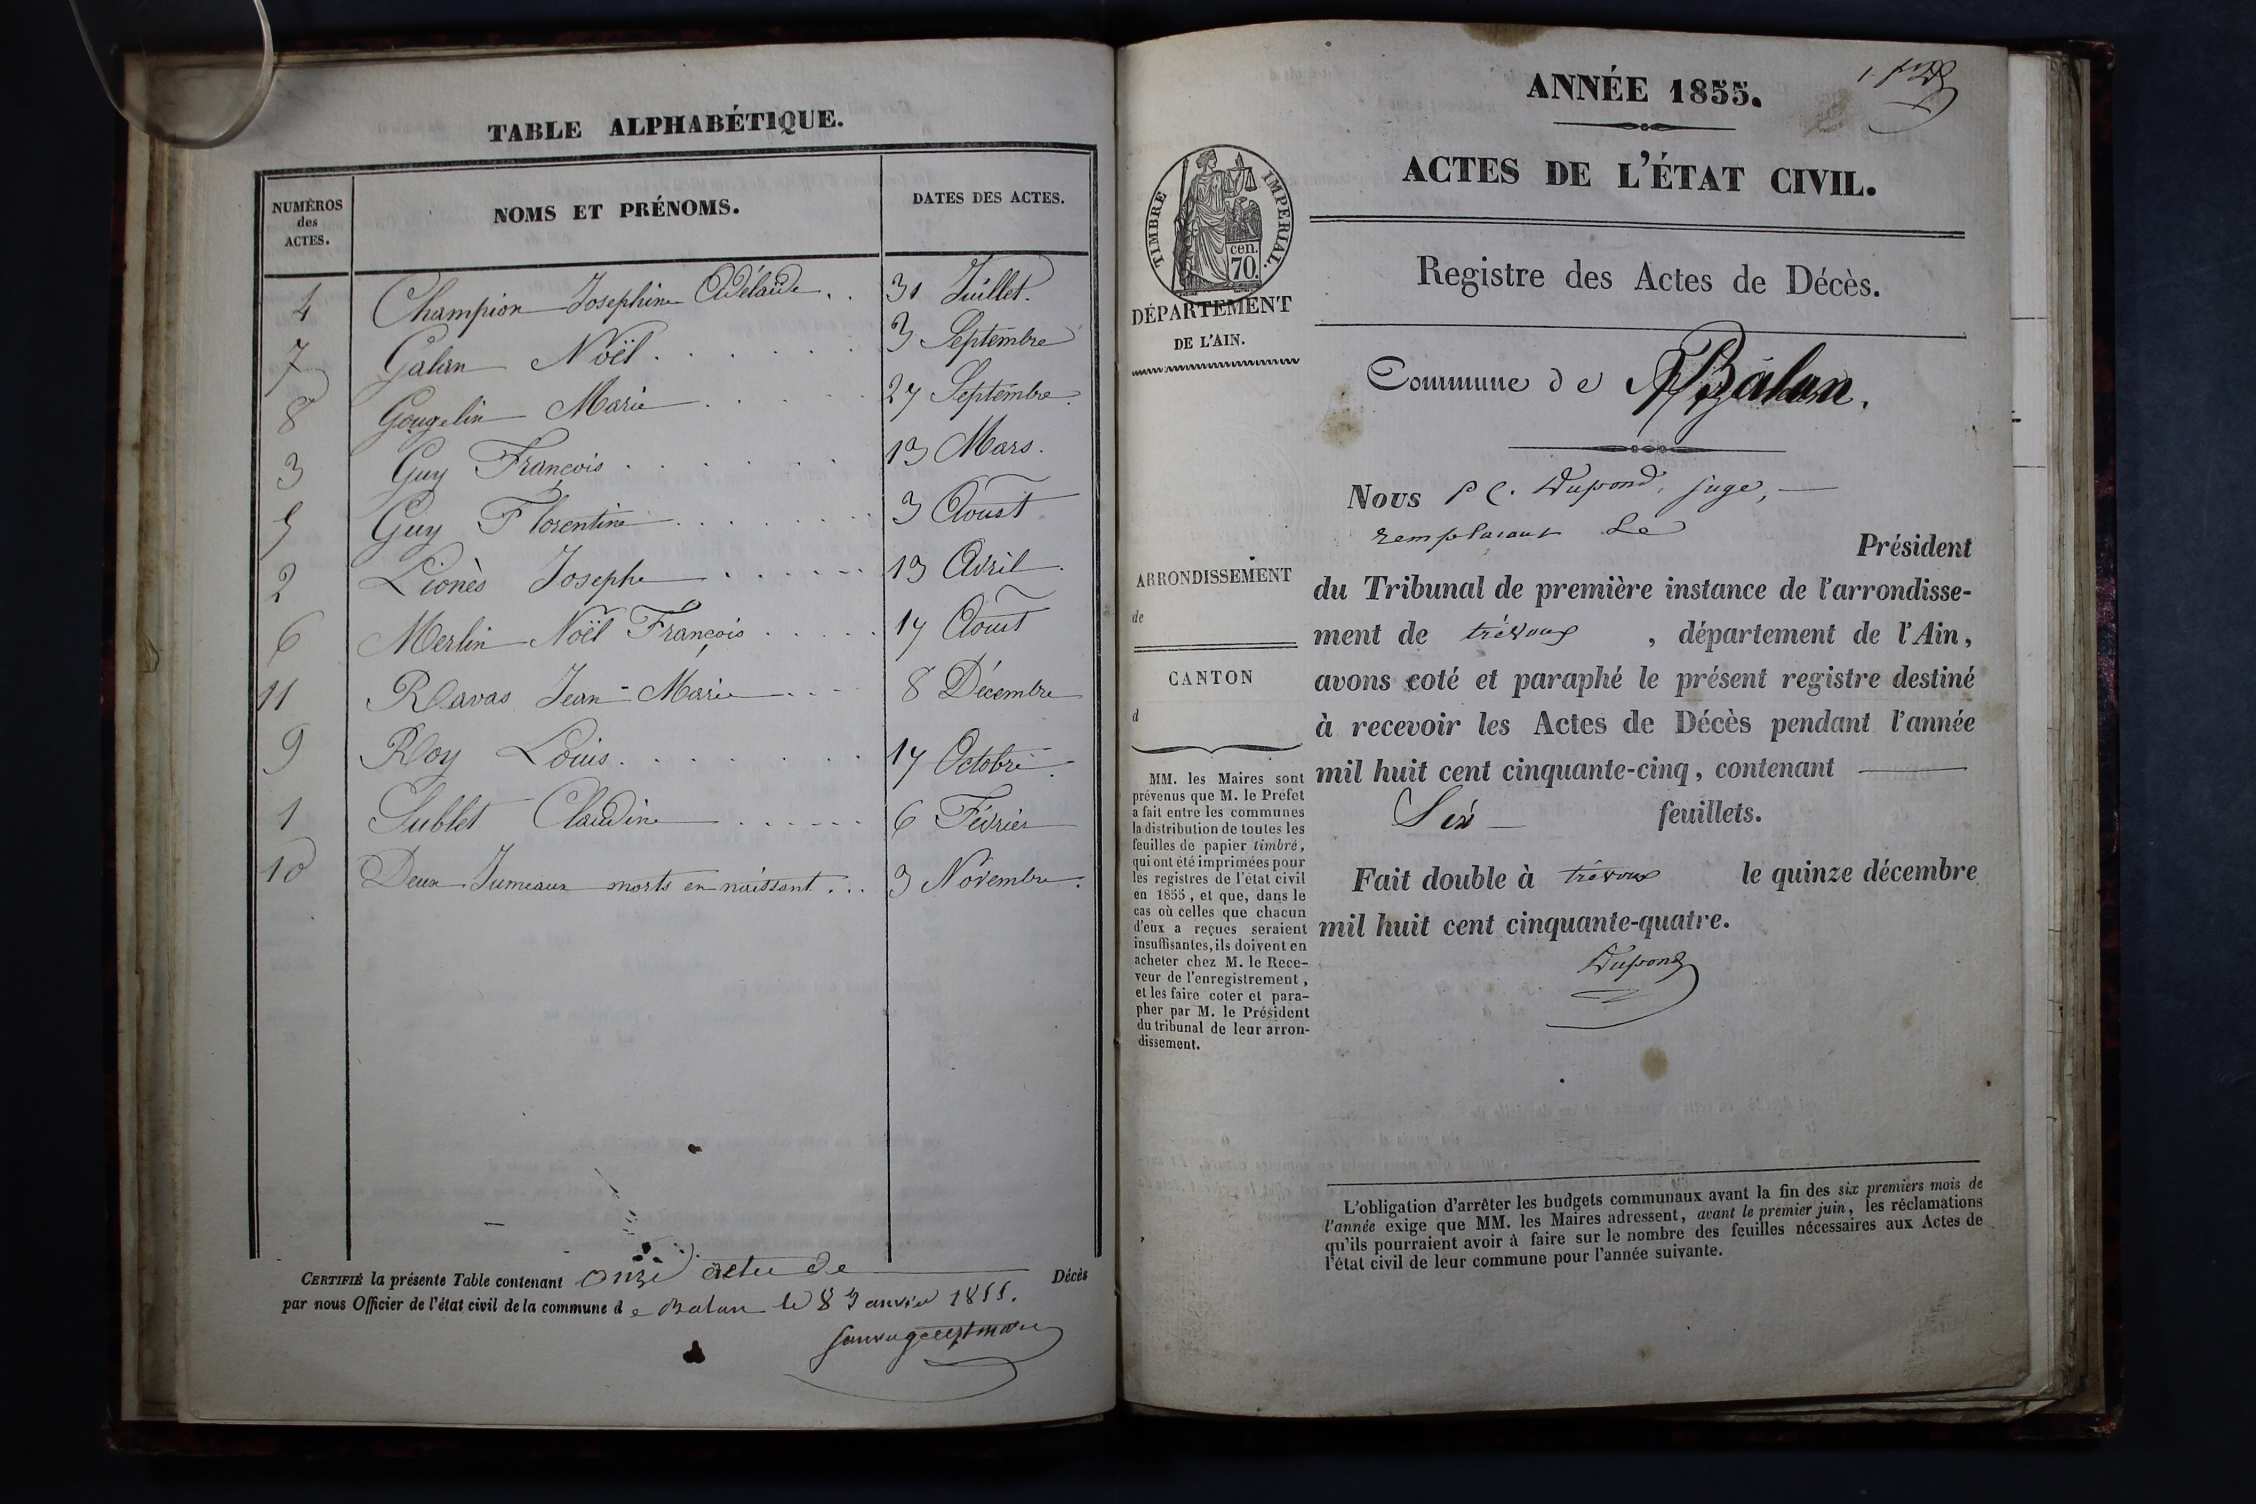 TABLE ALPHABÉTIQUE.
NUMÉROS des ACTES.
NOMS ET PRÉNOMS.
DATES DES ACTES.
4 Champion Josephine Adélaïde . . 31 Juillet.
7 Galan Noël . . . . . . . 3 Septembre
8 Gougelin Marie . . . . . . 27 Septembre.
3 Guy François . . . . . . . 13 Mars.
5 Guy Florentine . . . . . . . 3 Aoust
2 Lionès Josephe . . . . . . 13 Avril.
6 Merlin Noël François . . . . . 17 Aoust
11 Ravas Jean-Marie . . . 8 Décembre
9 Roy Louis . . . . . . . . 17 Octobre.
1 Sublet Claudine . . . . . . 6 Février
10 Deux Jumeaux morts en naissant . . . 3 Novembre.
CERTIFIÉ la présente Table contenant onze actes de Décès
par nous Officier de l'état civil de la commune de Balan le 8 Janvier 1855.
ANNÉE 1855.
ACTES DE L'ÉTAT CIVIL.
TIMBRE IMPERIAL.
cen.
70.
DÉPARTEMENT
DE L'AIN.
Registre des Actes de Décès.
Commune de Balan.
Nous P C. Dupond, juge,
remplaçant Le
Président
du Tribunal de première instance de l'arrondisse-
ment de trévoux , département de l'Ain,
avons coté et paraphé le présent registre destiné
à recevoir les Actes de Décès pendant l'année
mil huit cent cinquante-cinq, contenant
Six feuillets.
Fait double à trévoux le quinze décembre
mil huit cent cinquante-quatre.
Dupond
ARRONDISSEMENT
de
CANTON
d
MM. les Maires sont
prévenus que M. le Préfet
a fait entre les communes
la distribution de toutes les
feuilles de papier timbré,
qui ont été imprimées pour
les registres de l'état civil
en 1855, et que, dans le
cas où celles que chacun
d'eux a reçues seraient
insuffisantes, ils doivent en
acheter chez M. le Rece-
veur de l'enregistrement,
et les faire coter et para-
pher par M. le Président
du tribunal de leur arron-
dissement.
L'obligation d'arrêter les budgets communaux avant la fin des six premiers mois de
l'année exige que MM. les Maires adressent, avant le premier juin, les réclamations
qu'ils pourraient avoir à faire sur le nombre des feuilles nécessaires aux Actes de
l'état civil de leur commune pour l'année suivante.